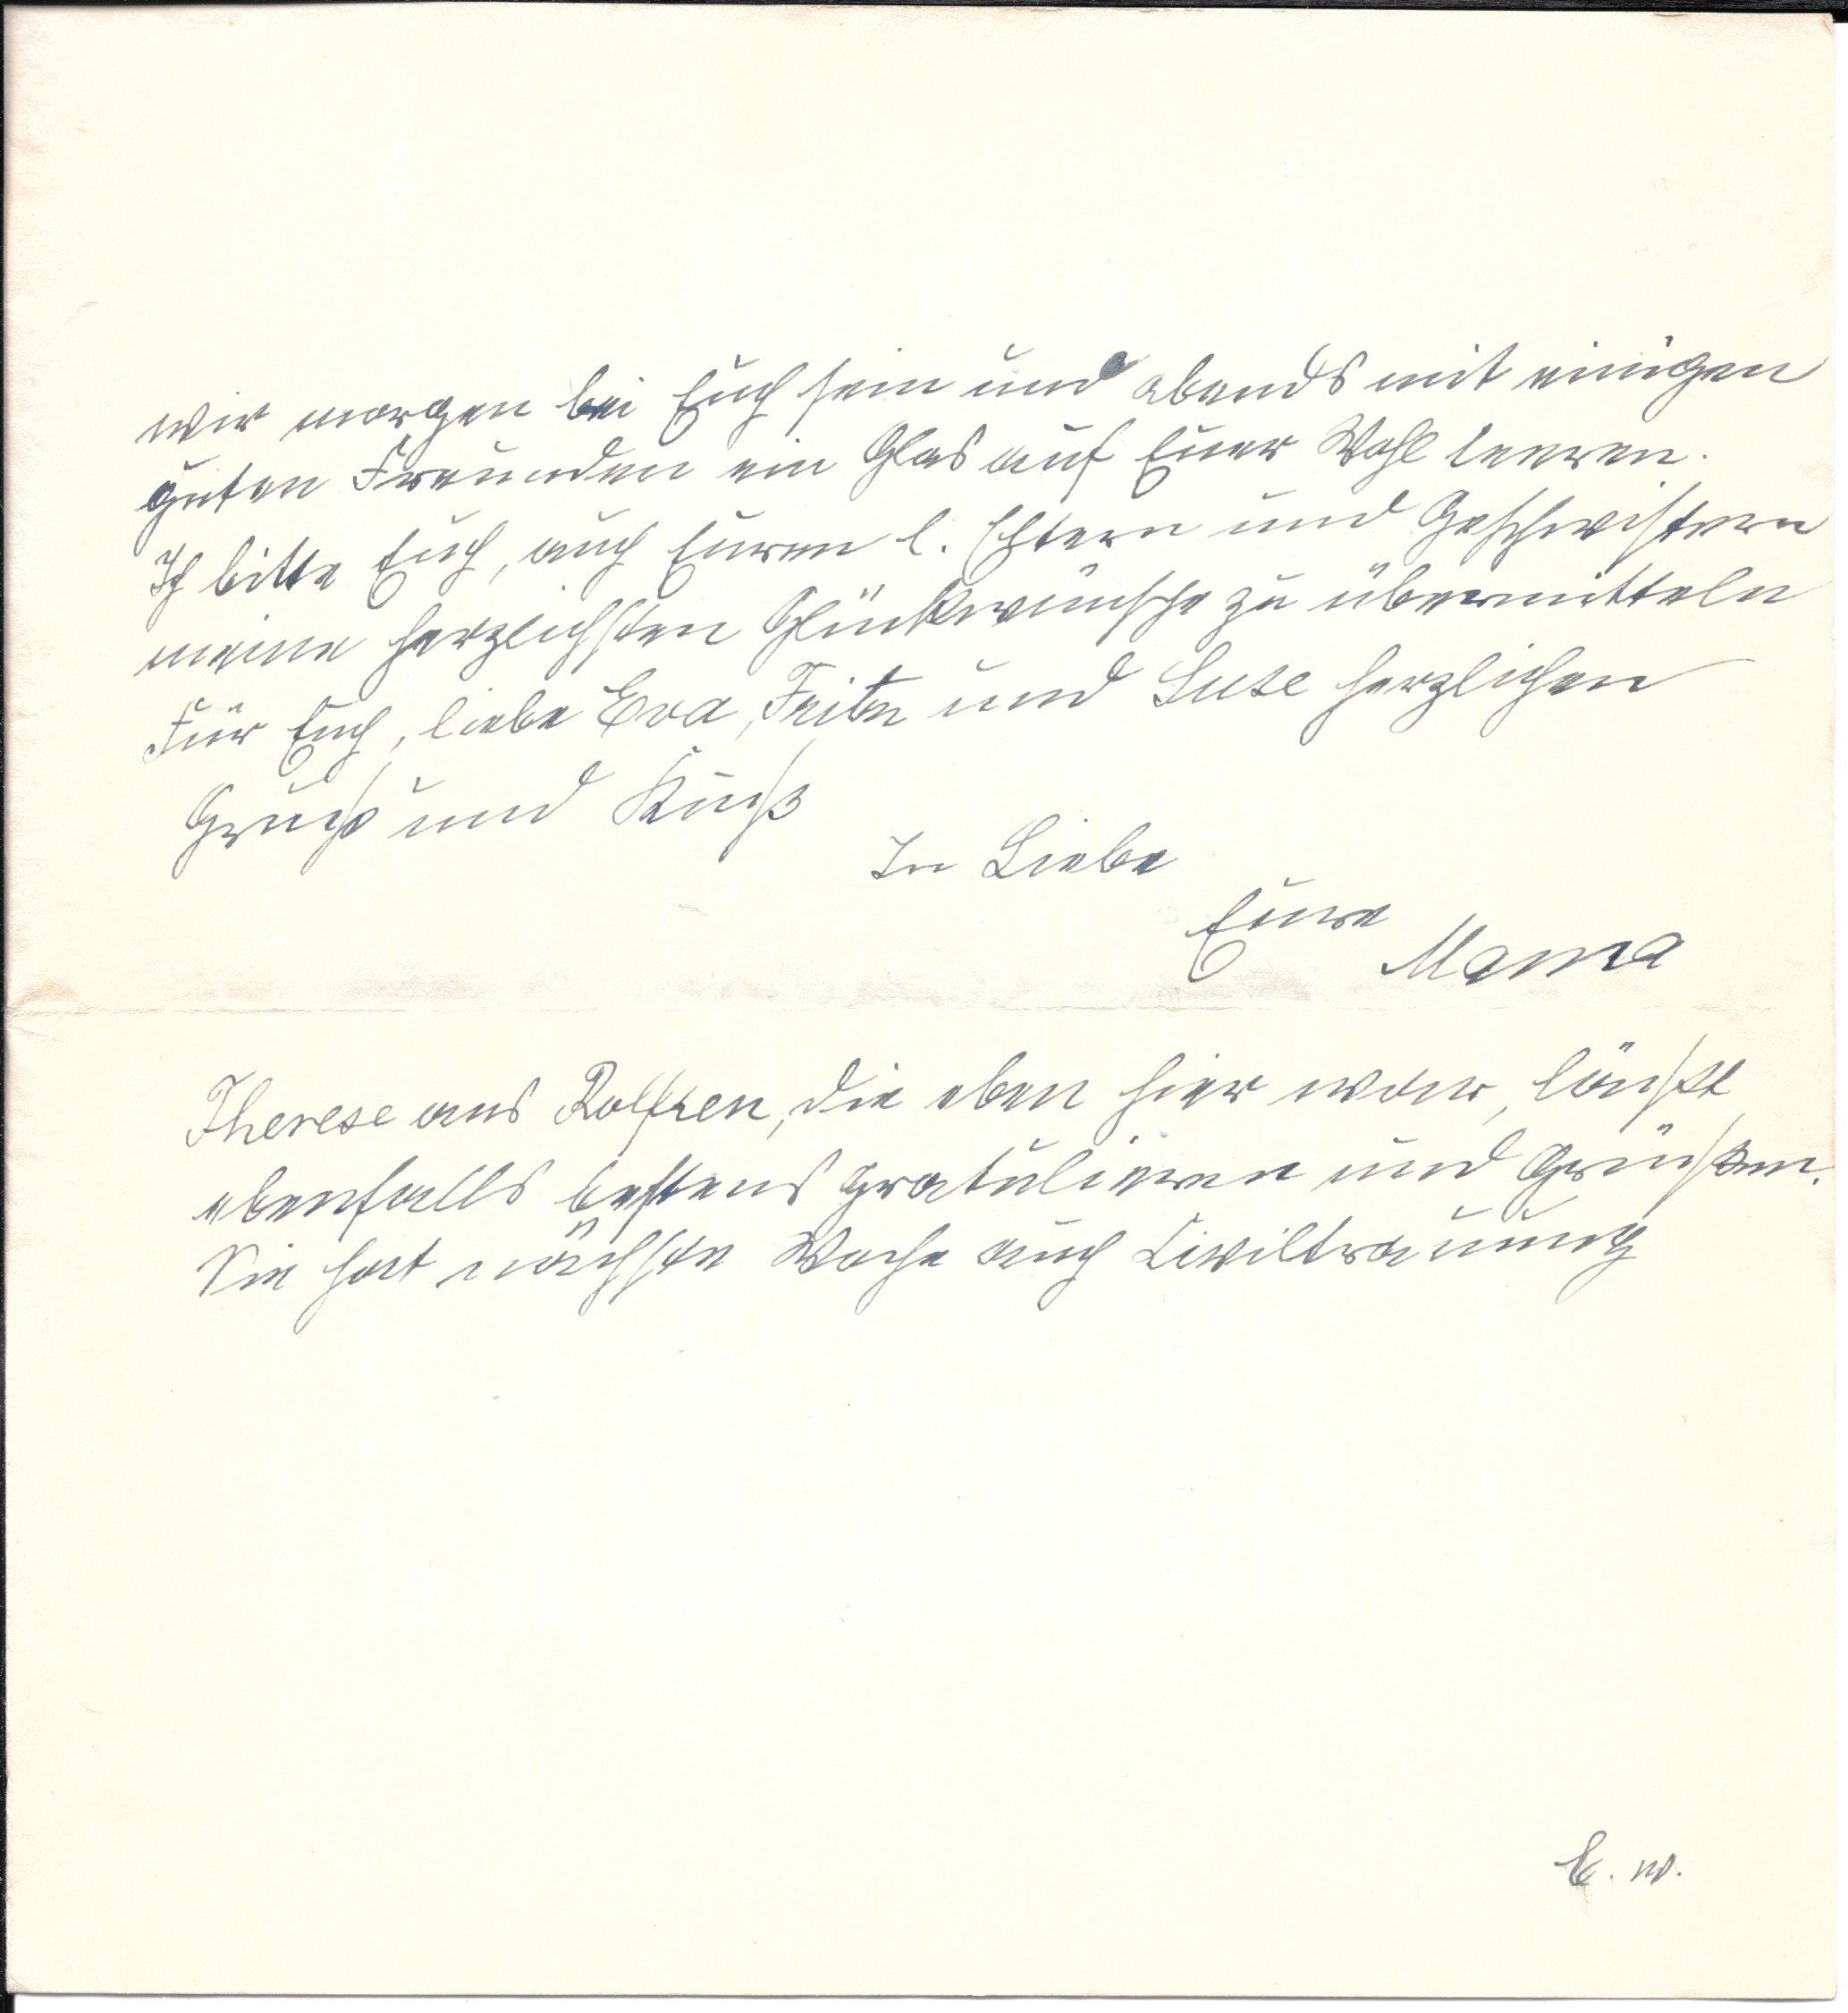 wir morgen bei Euch sein und abends mit einigen
guten Freunden ein Glas auf Euer Wohl leeren.
Ich bitte Euch, auch Euren l. Eltern und Geschwistern
meine herzlichsten Glückwünsche zu übermitteln
Für Euch, liebe Eva, und herzlichen
Gruß und Kuß
In Liebe
Eure
Mama
Therese aus die eben hier war, läußt
ebenfalls bestens gratulieren und Grüßen.
Sie hat nächste Woche auch Civiltrauung